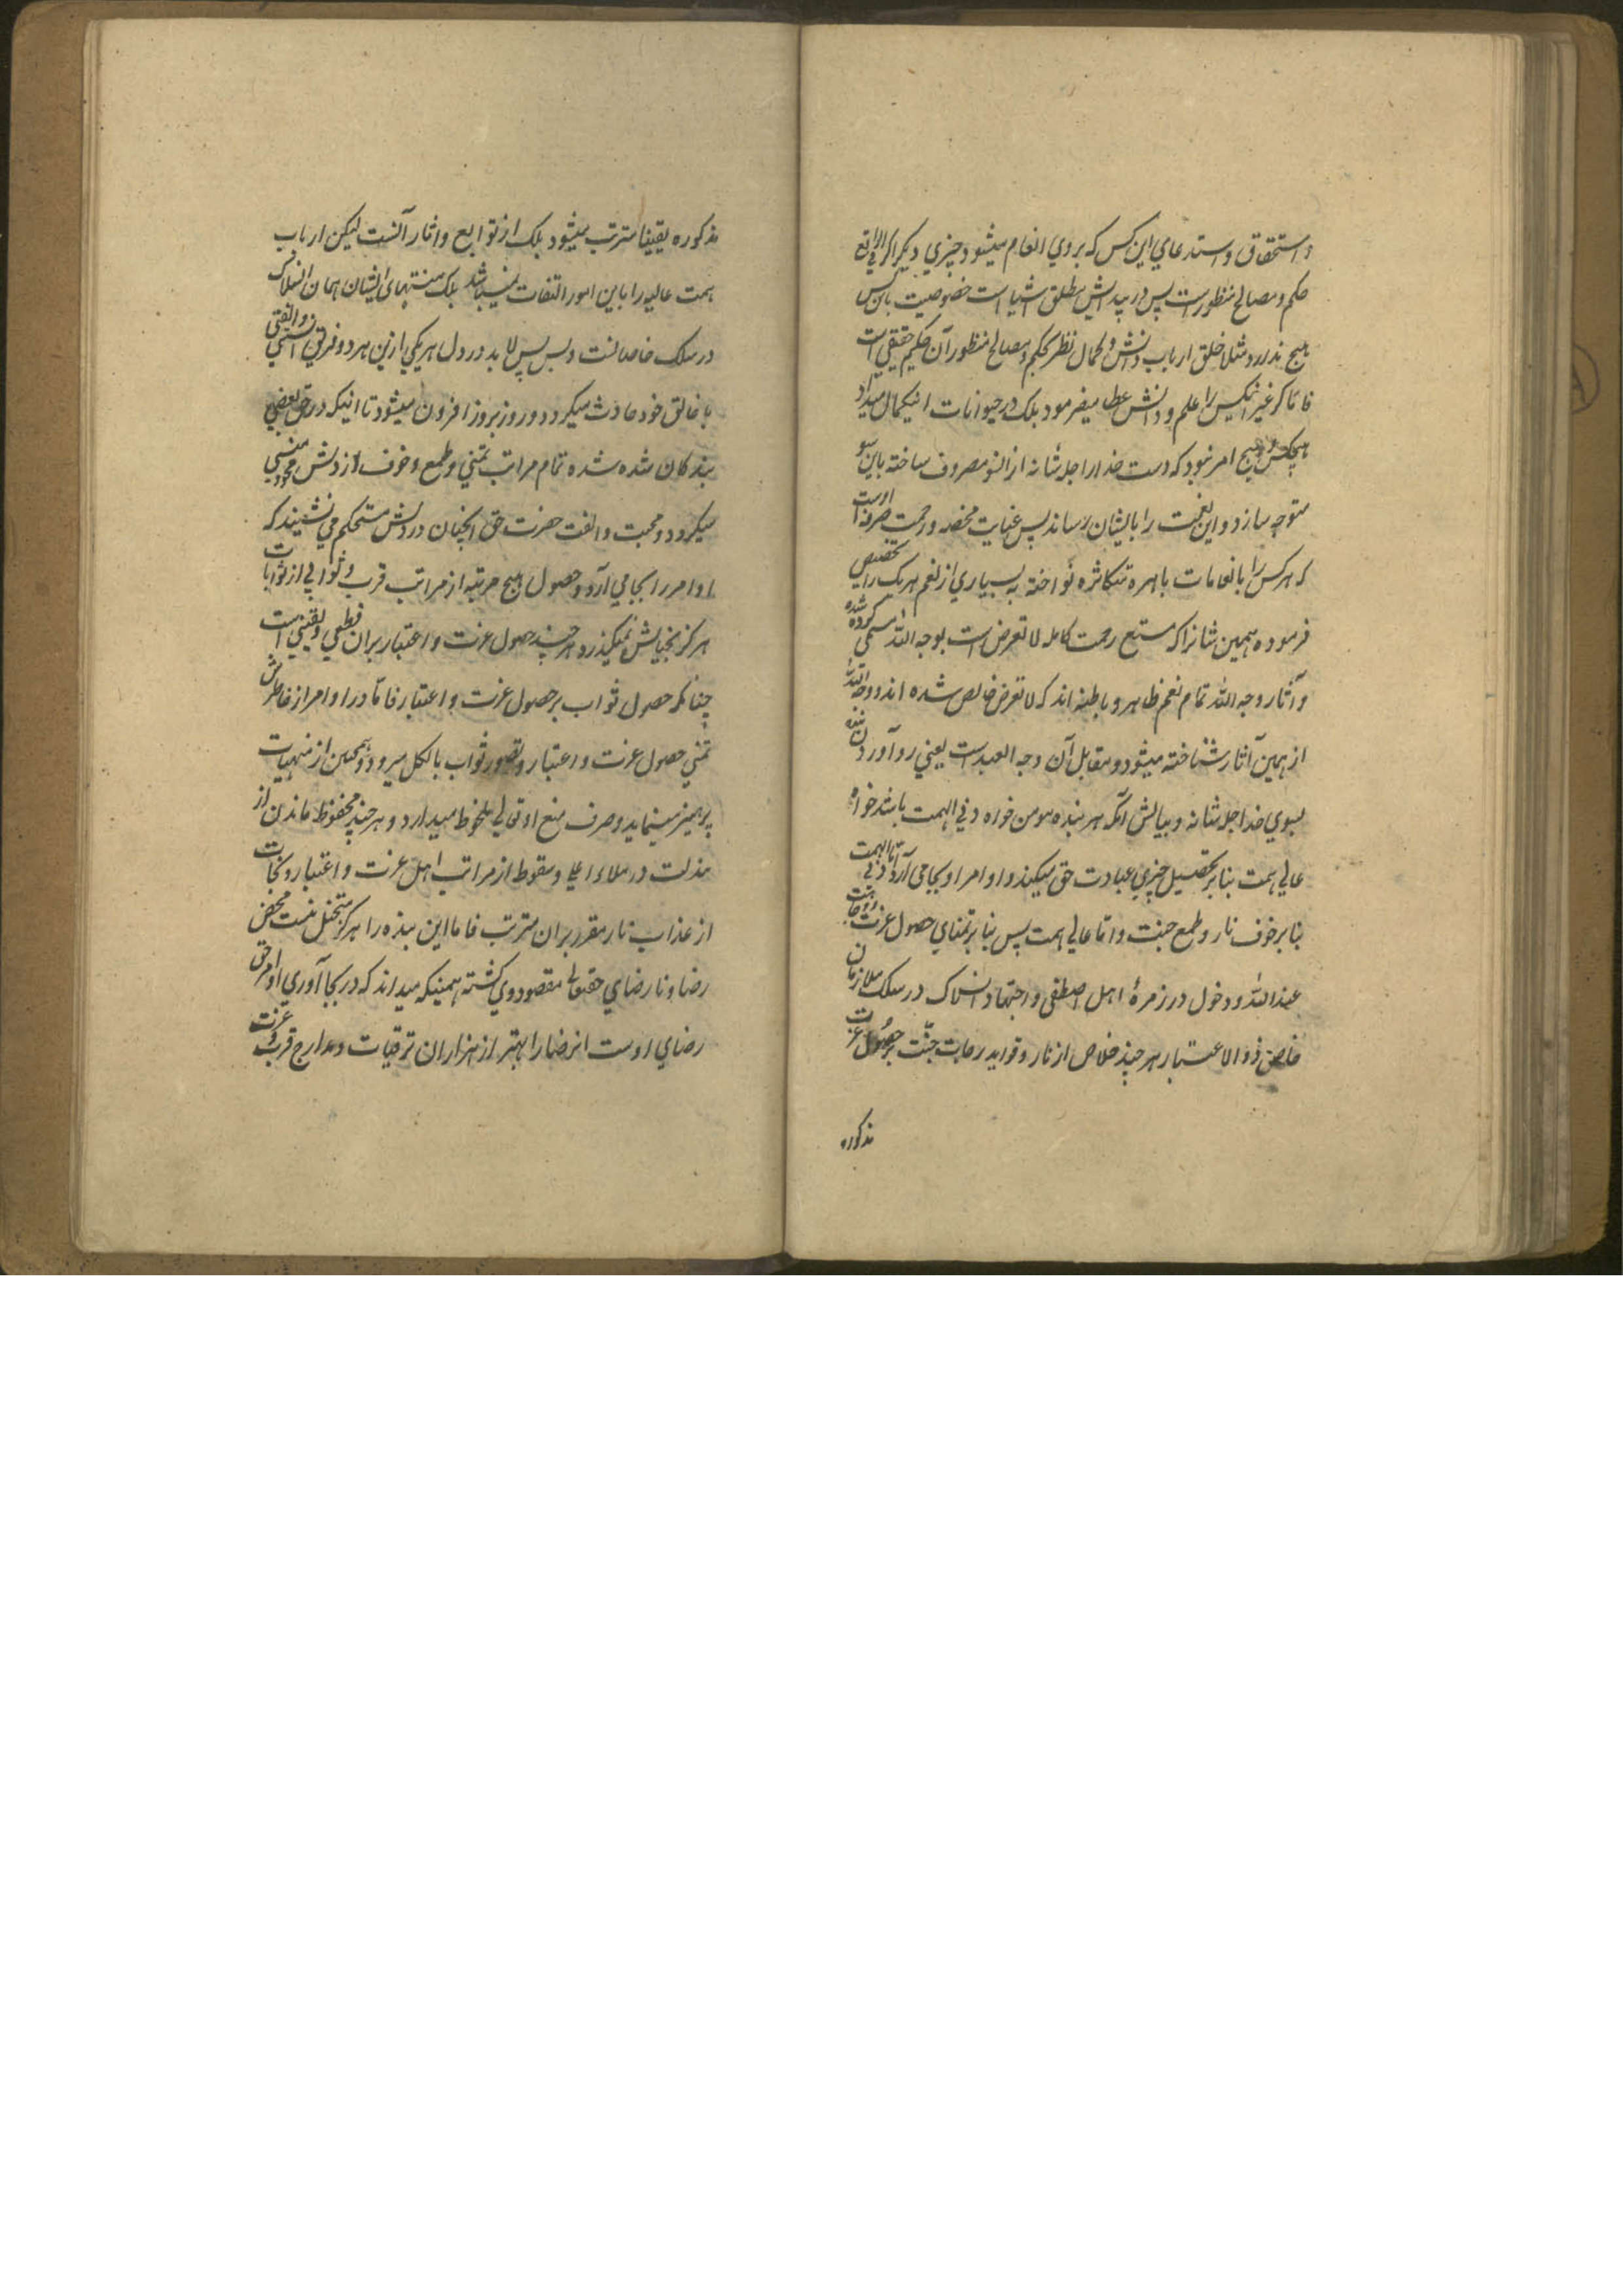 و استحقاق و استدعای این کس که بروی انعام میشود چیزی دیگر اگر فی الواقع
حکم و مصالح منظور است پس در پیدایش مطلق اشیا است خصوصیت باین کس
هیچ ندارد مثلا خلق ارباب دانش و کمال نظر بحکم و مصالح منظور آن حکیم حقیقی است
فاما اگر غیر اینکس را علم و دانش عطا میفرمود بلک در حیوانات اینکمال میداد
هیچکس و هیچ امر نبود که دست خدا را جل شانه از انسو مصروف ساخته باین سو
متوجه سازد و این نعمت را بایشان رساند پس عنایت محضه و رحمت صرفه اوست
که هر کس را بانعامات باهره متکاثره نواخته به بسیاری از نعم هر یک را تخصیص
فرموده همین شانرا که مستتبع رحمت کامله لا تعرض است بوجه الله مسمی کرده شده
و آثار وجه الله تمام نعم ظاهره و باطنه اند که لا تعرض خالص شده اند و وجه الله
از همین آثار شناخته میشود و مقابل آن وجه العبد است یعنی رو آوردن بنده
بسوی خدا جل شانه و بیانش آنکه هر بنده مومن خواه دنی الهمت باشد خواه
عالی همت بنا بر تحصیل چیزی عبادت حق میکند و اوامر او بجا می آرد اما دنی الهمت
بنا بر خوف نار و طمع جنت و اما عالی همت پس بنا بر تمنای حصول عزت و وجاهت
عند الله و دخول در زمرهٔ اهل اصطفی و اجتباء و انسلاک در سلک ملازمان
خاص ذو الاعتبار هر چند خلاص از نار و فواید رحابت جنّت بر حصول عزت
مذکوره
مذکوره یقینا مترتب میشود بلک از توابع و اثار آنست لیکن ارباب
همت عالیه را باین امور التفات نمیباشد بلک منتهای ایشان همان انسلاک
در سلک خاصانست و بس پس لابد در دل هر یکی ازین هر دو فریق انسی و الفتی
با خالق خود حادث میگردد و روز بروز افزون میشود تا اینکه در حق بعضی
بندگان شده شده تمام مراتب تمنی و طمع و خوف از دلش محو و منسی
میگردد و محبت و الفت حضرت حق آنچنان در دلش مستحکم می نشیند که
اوامر را بجا می آرد و حصول هیچ مرتبه از مراتب قرب و ثوابی از ثوابات
هرگز بخیالش نمیگذرد هر چند حصول عزت و اعتبار بران قطعی و یقینی است
چنانکه حصول ثواب بر حصول عزت و اعتبار فاما در اوامر از خاطرش
تمنی حصول عزت و اعتبار و تصور ثواب بالکل میرود و همچنین از منهیات
پرهیز مینماید و صرف منع او تعالی ملحوظ میدارد و هر چند محفوظ ماندن از
مذلت در ملاء اعلی و سقوط از مراتب اهل عزت و اعتبار و نجات
از عذاب نار مقرر بران مترتب فاما این بنده را هرگز متخیل نیست محض
رضا و نارضای حقتعالی مقصود وی گشته همینکه میداند که در بجا آوری اوامر حق
رضای اوست انرضا را بهتر از هزاران ترقیات و مدارج قرب و عزت